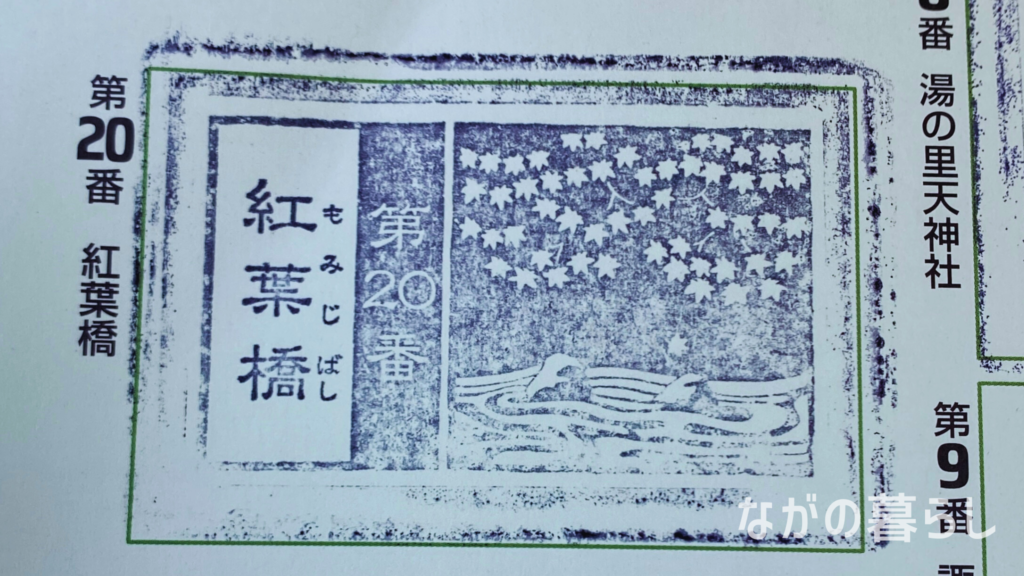 番 湯の里天神社
第9番
第20番 紅葉橋
第20番
紅葉橋
もみじばし
ながの暮らし